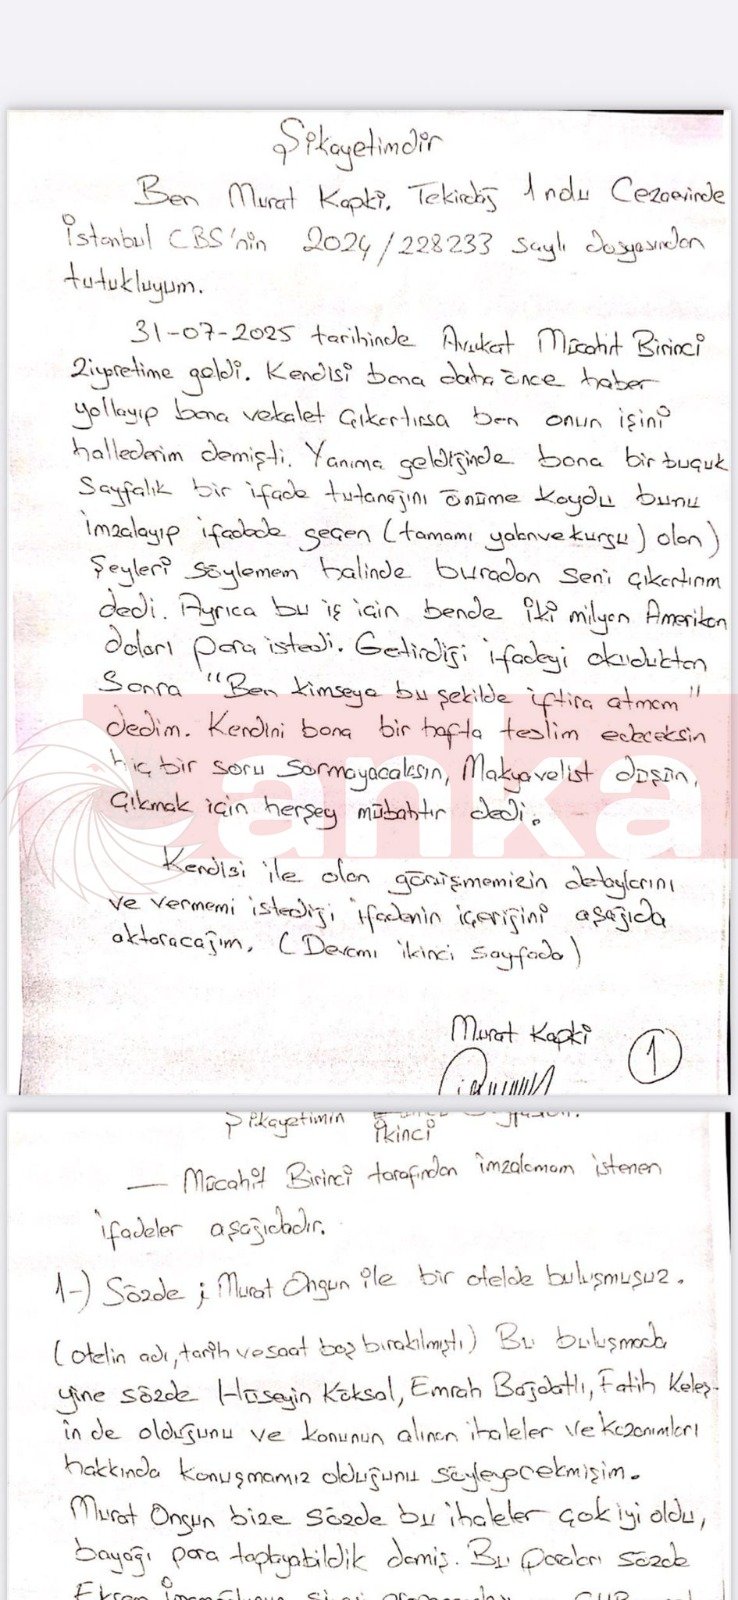 Şikayetimdir
Ben Murat Kapki. Tekirdağ 1 nolu Cezaevinde
İstanbul CBS'nin 2024/228233 sayılı dosyasından
tutukluyum.
31-07-2025 tarihinde Avukat Mücahit Birinci
ziyaretime geldi. Kendisi bana daha önce haber
yollayıp bana vekalet çıkartırsa ben onun işini
hallederim demişti. Yanıma geldiğinde bana bir buçuk
sayfalık bir ifade tutanağını önüme koydu bunu
imzalayıp ifadede geçen (tamamı yalan ve kurgu) olan)
şeyleri söylemem halinde buradan seni çıkartırım
dedi. Ayrıca bu iş için bende iki milyon Amerikan
doları para istedi. Getirdiği ifadeyi okuduktan
sonra "Ben kimseye bu şekilde iftira atmam"
dedim. Kendini bana bir hafta teslim edeceksin
hiç bir soru sormayacaksın, Makyavelist düşün,
çıkmak için herşey mübahtır dedi.
anka
Kendisi ile olan görüşmemizin detaylarını
ve vermemi istediği ifadenin içeriğini aşağıda
aktaracağım. (Devamı ikinci sayfada)
Murat Kapki
1
Şikayetimin
ikinci
— Mücahit Birinci tarafından imzalamam istenen
ifadeler aşağıdadır.
1-) Sözde ; Murat Ongun ile bir otelde buluşmuşuz.
(otelin adı, tarih ve saat boş bırakılmıştı) Bu buluşmada
yine sözde Hüseyin Köksal, Emrah Bağdatlı, Fatih Keleş-
in de olduğunu ve konunun alınan ihaleler ve kazanımları
hakkında konuşmamız olduğunu söyleyecekmişim.
Murat Ongun bize sözde bu ihaleler çok iyi oldu,
bayağı para toplayabildik demiş. Bu paraları sözde